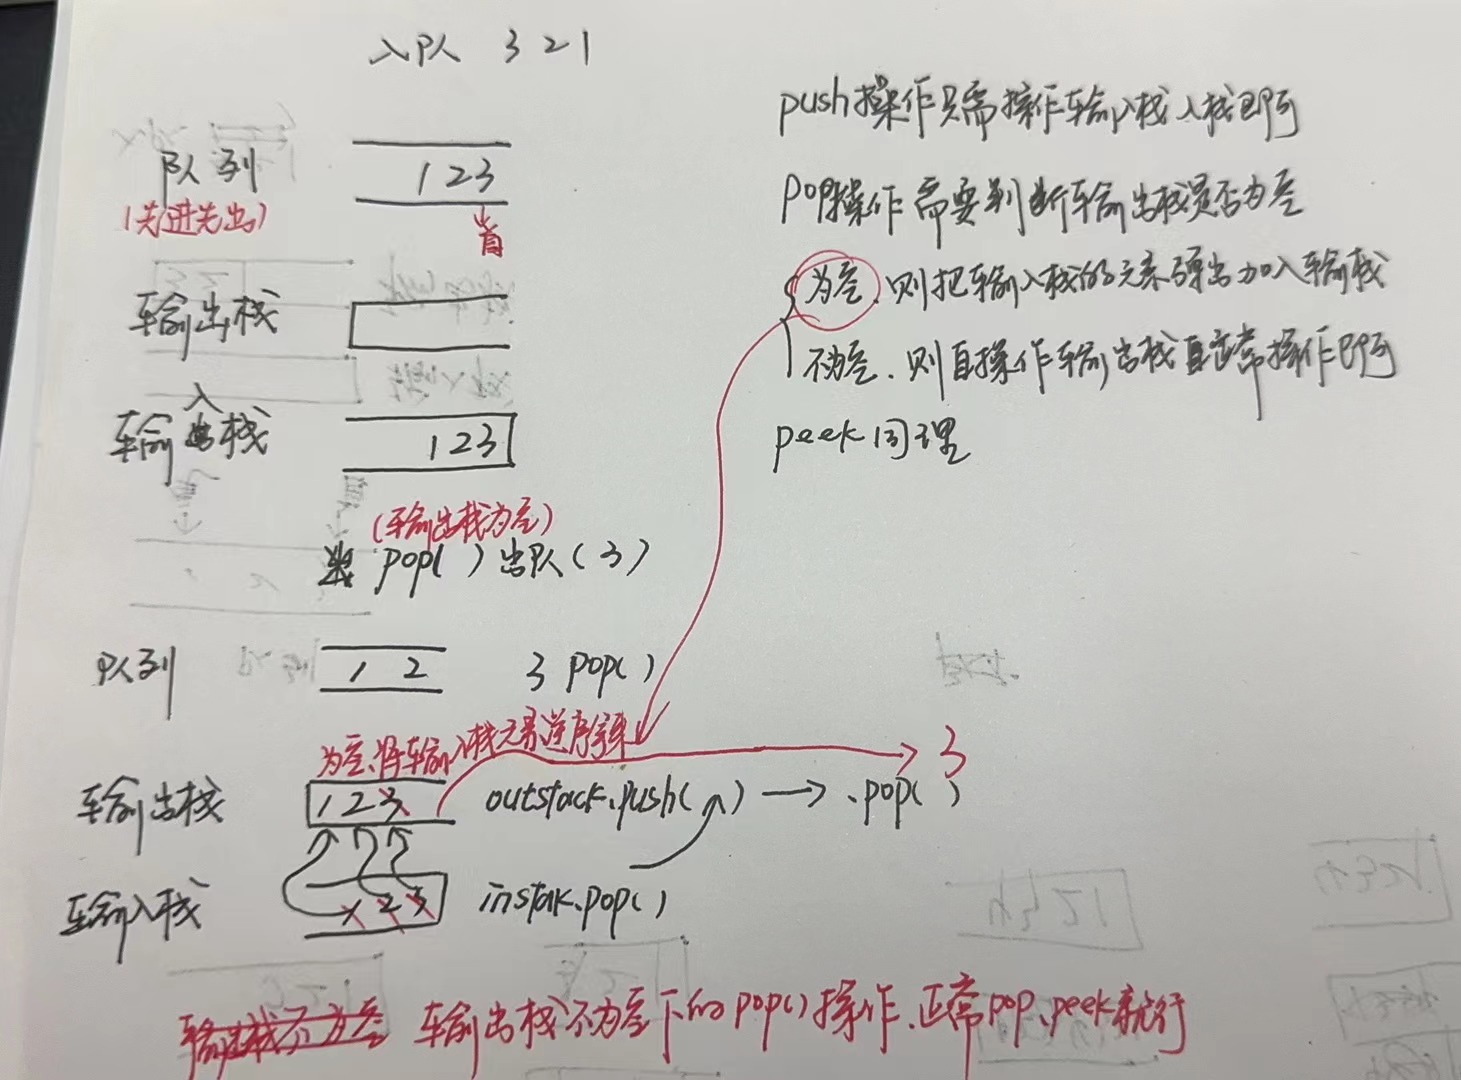 入队 3 2 1
push操作只需操作输入栈入栈即可
队列 1 2 3
(先进先出)
首
pop操作需要判断输出栈是否为空
为空,则把输入栈的元素弹出加入输栈
输出栈
不为空,则直操作输出栈正常操作即可
输入栈 1 2 3
peek同理
(输出栈为空)
pop( ) 出队(3)
队列 1 2 3 pop( )
为空,将输入栈元素逆序
3
输出栈 1 2 3 outstack.push( ) → .pop( )
输入栈 1 2 3 instak.pop( )
输出栈不为空 输出栈不为空下的pop()操作.正常pop、peek就行